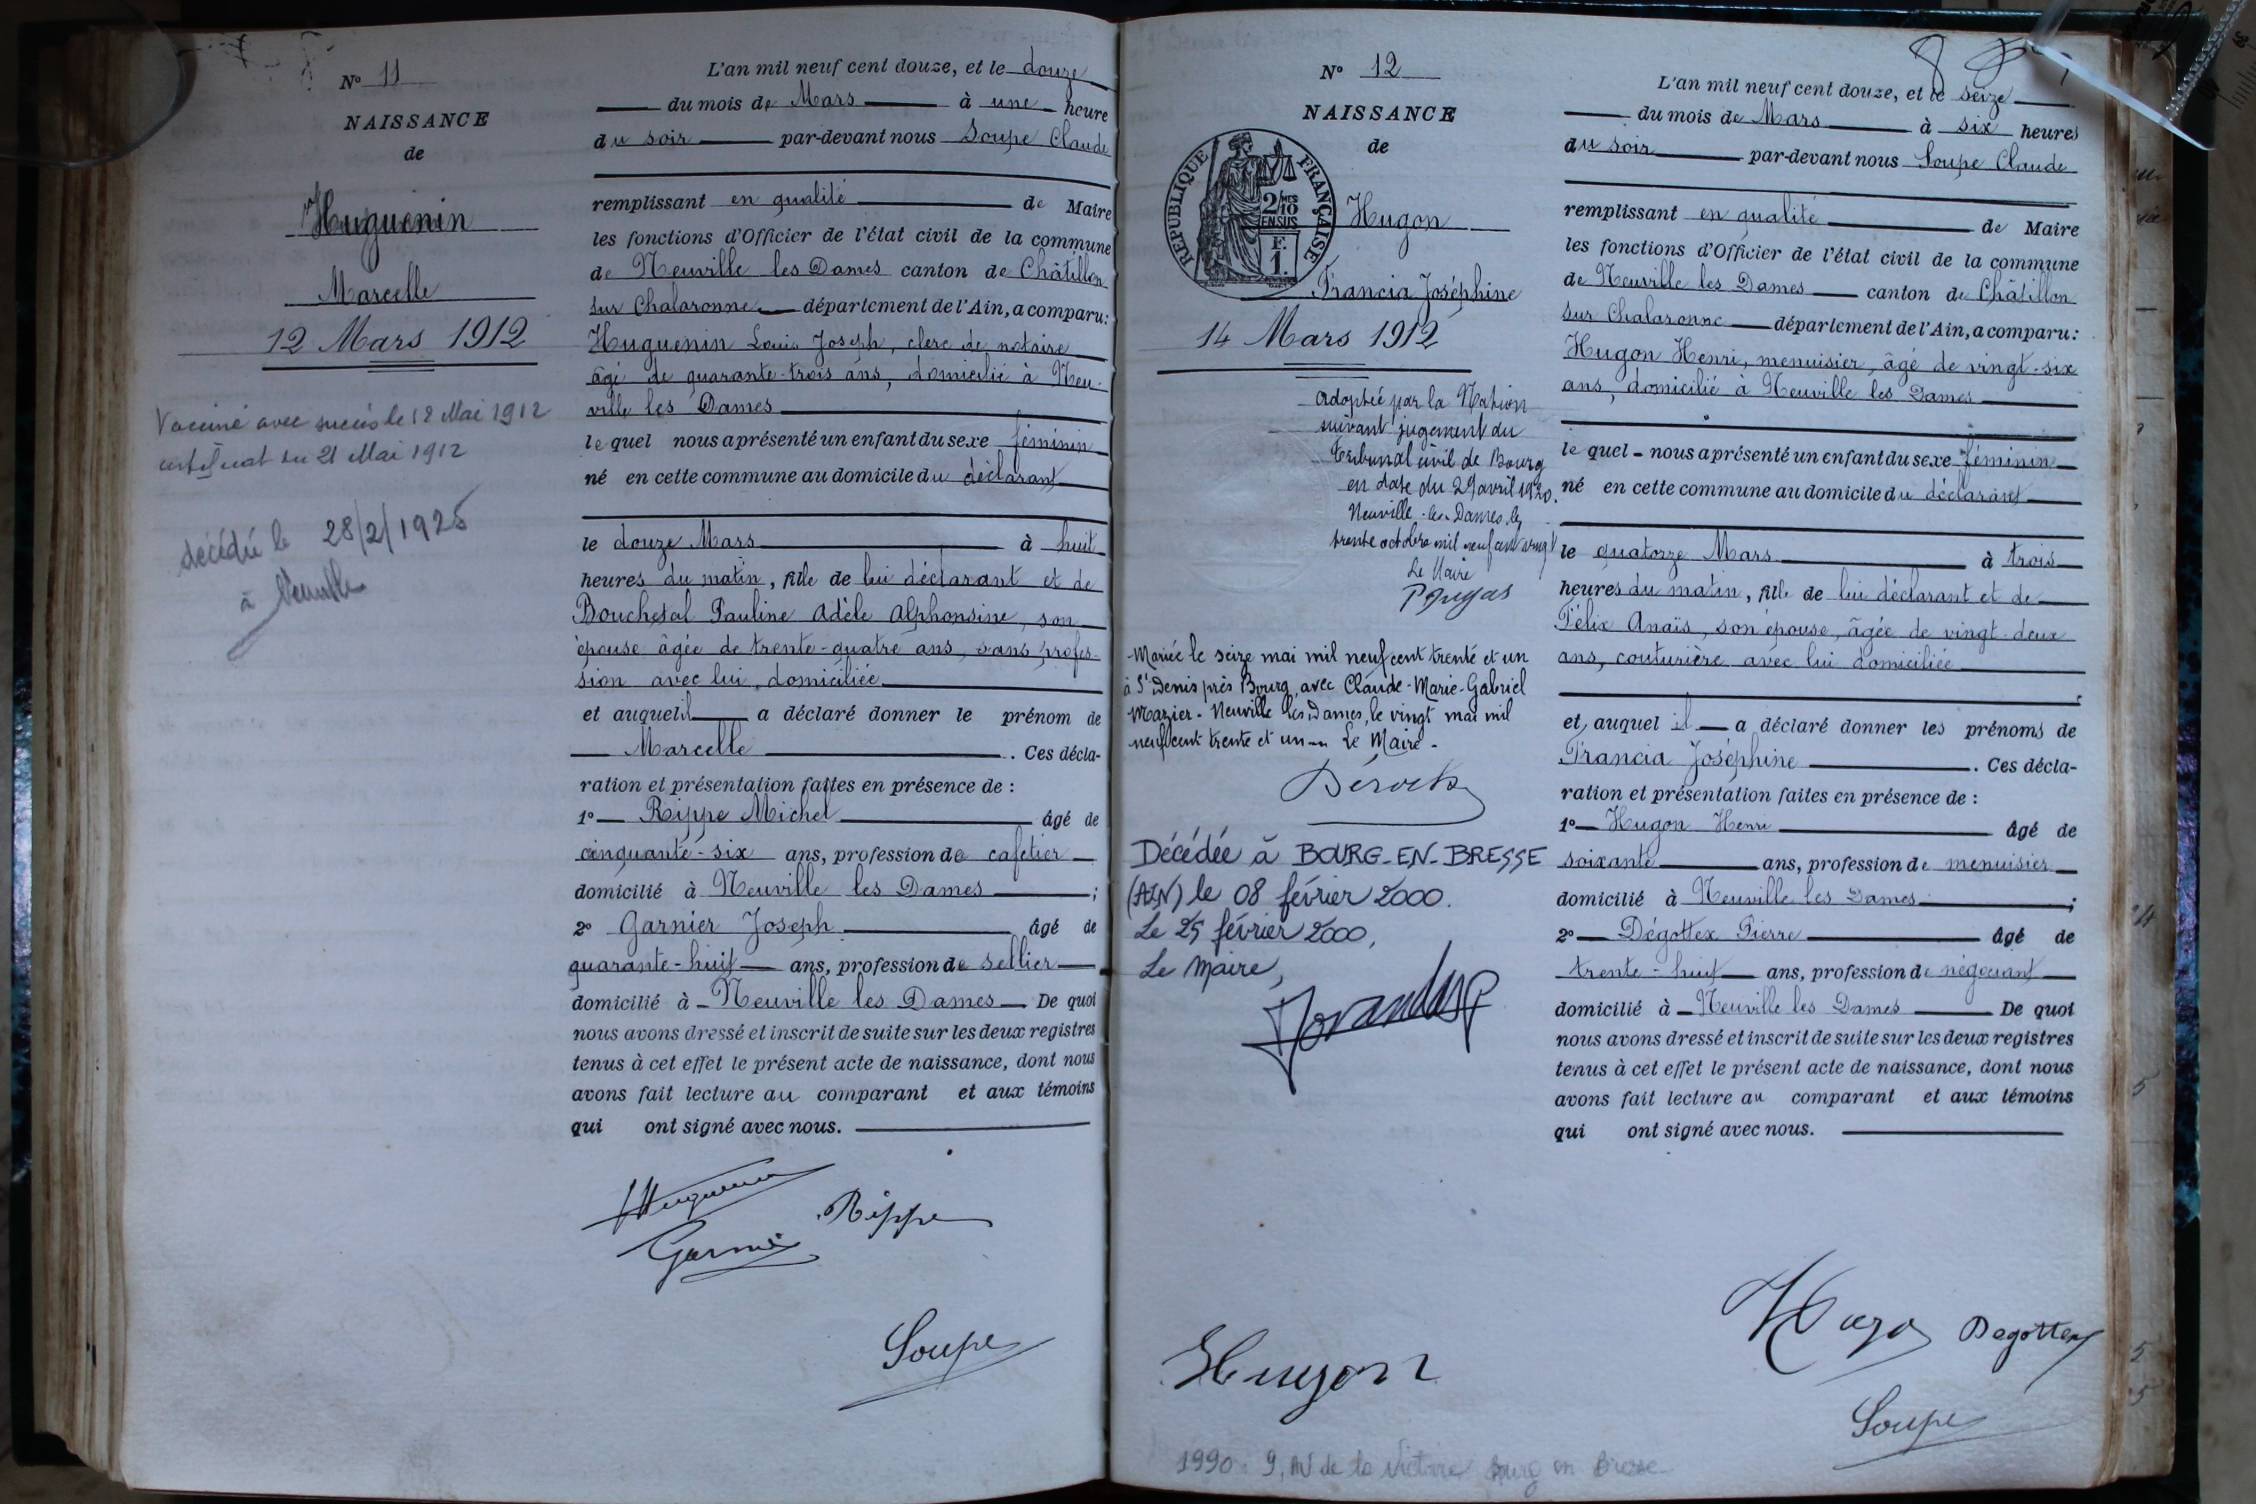 N° 11
NAISSANCE
de
Huguenin
Marcelle
12 Mars 1912
Vacciné avec succès le 12 Mai 1912
certificat du 21 Mai 1912
décédé le 28/2/1925
à Neuville
L'an mil neuf cent douze, et le douze
du mois de Mars à une heure
du soir par-devant nous Soupe Claude
remplissant en qualité de Maire
les fonctions d'Officier de l'état civil de la commune
de Neuville les Dames canton de Châtillon
sur Chalaronne département de l'Ain, a comparu:
Huguenin Louis Joseph, clerc de notaire
âgé de quarante-trois ans, domicilié à Neu-
ville les Dames
le quel nous a présenté un enfant du sexe féminin
né en cette commune au domicile du déclarant
le douze Mars à huit
heures du matin, fille de lui déclarant et de
Pauline Adèle Alphonsine, son
épouse âgée de trente-quatre ans, sans profes-
sion avec lui domiciliée
et auquel il a déclaré donner le prénom de
Marcelle . Ces décla-
ration et présentation faites en présence de :
1° Rippe Michel âgé de
cinquante-six ans, profession de cafetier
domicilié à Neuville les Dames ;
2° Garnier Joseph âgé de
quarante-huit ans, profession de sellier
domicilié à Neuville les Dames De quoi
nous avons dressé et inscrit de suite sur les deux registres
tenus à cet effet le présent acte de naissance, dont nous
avons fait lecture au comparant et aux témoins
qui ont signé avec nous.
Huguenin
Rippe
Garnier
Soupe
N° 12
NAISSANCE
de
RÉPUBLIQUE FRANÇAISE
2/10
EN SUS
F.
1.
Hugon
Francia Joséphine
14 Mars 1912
adoptée par la Nation
suivant jugement du
Tribunal civil de Bourg
en date du 29 avril 1920.
Neuville-les-Dames, le
trente octobre mil neuf cent vingt
Le Maire
Mariée le seize mai mil neuf cent trente et un
à St Denis près Bourg, avec Claude-Marie-Gabriel
Mazier - Neuville les Dames, le vingt mai mil
neuf cent trente et un - Le Maire -
Décédée à BOURG-EN-BRESSE
(AIN) le 08 février 2000.
Le 25 février 2000,
Le Maire,
8
L'an mil neuf cent douze, et le seize
du mois de Mars à six heures
du soir par-devant nous Soupe Claude
remplissant en qualité de Maire
les fonctions d'Officier de l'état civil de la commune
de Neuville les Dames canton de Châtillon
sur Chalaronne département de l'Ain, a comparu:
Hugon Henri, menuisier, âgé de vingt-six
ans, domicilié à Neuville les Dames
le quel nous a présenté un enfant du sexe féminin
né en cette commune au domicile du déclarant
le quatorze Mars à trois
heures du matin, fille de lui déclarant et de
Félix Anaïs, son épouse, âgée de vingt-deux
ans, couturière avec lui domiciliée
et auquel il a déclaré donner les prénoms de
Francia Joséphine . Ces décla-
ration et présentation faites en présence de :
1° Hugon Henri âgé de
soixante ans, profession de menuisier
domicilié à Neuville les Dames ;
2° Dégottex Pierre âgé de
trente-huit ans, profession de négociant
domicilié à Neuville les Dames De quoi
nous avons dressé et inscrit de suite sur les deux registres
tenus à cet effet le présent acte de naissance, dont nous
avons fait lecture au comparant et aux témoins
qui ont signé avec nous.
Hugon
Degottex
Hugon
Soupe
1990 : 9, Av de la Victoire Bourg en Bresse